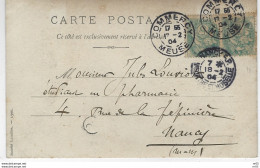 CARTE POSTALE
Ce côté est exclusivement réservé à l'adresse
COMMERCY
17 55
17 -2
04
MEUSE
COMMERCY
17 55
17 -2
04
MEUSE
7
18 -2
04
Monsieur Jules
étudiant en pharmacie
4. Rue de la Pépinière
Nancy